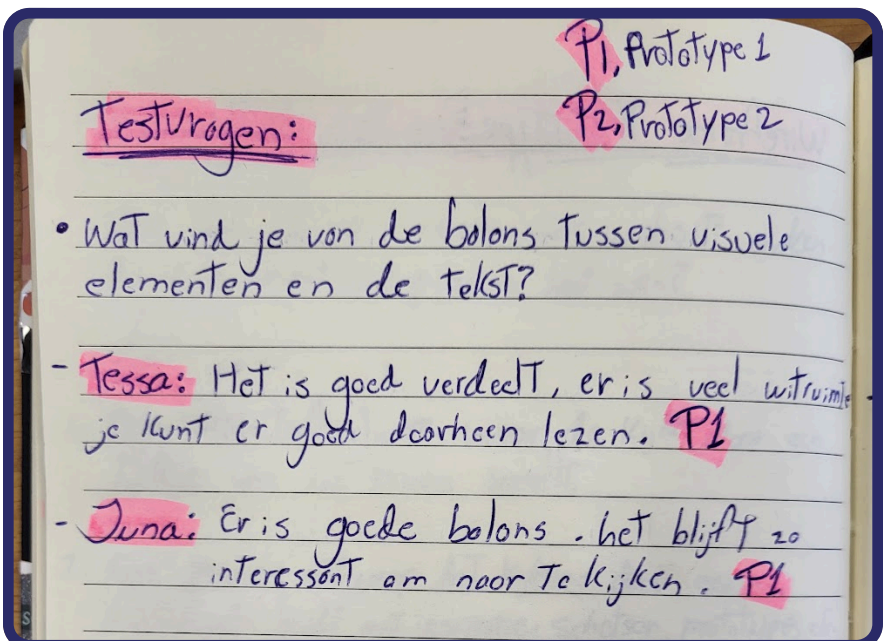 P1, Prototype 1
P2, Prototype 2
Testvragen:
• Wat vind je van de balans tussen visuele
elementen en de tekst?
- Tessa: Het is goed verdeelt, er is veel witruimte
je kunt er goed doorheen lezen. P1
- Juna: Er is goede balans. het blijft zo
interessant om naar te kijken. P1